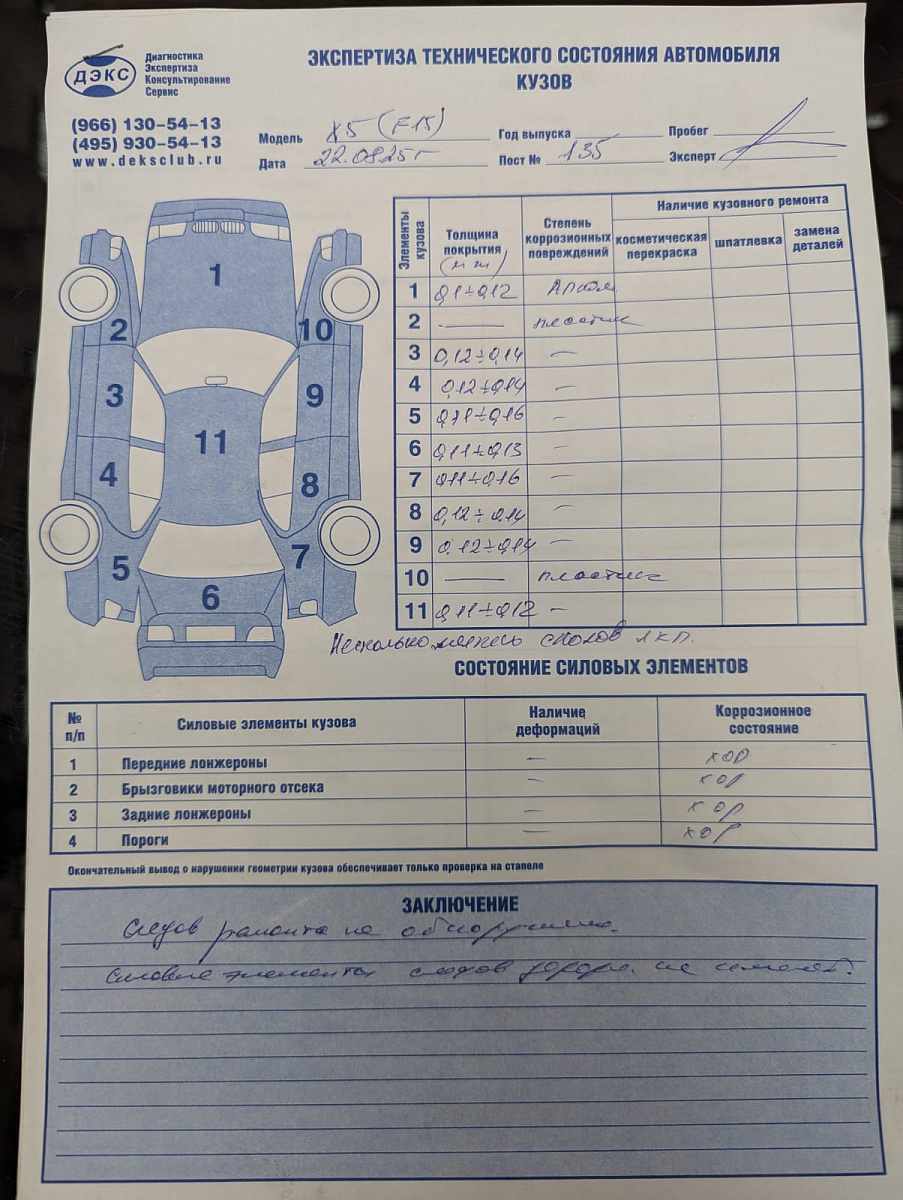 ДЭКС
Диагностика
Экспертиза
Консультирование
Сервис
(966) 130-54-13
(495) 930-54-13
www.deksclub.ru
ЭКСПЕРТИЗА ТЕХНИЧЕСКОГО СОСТОЯНИЯ АВТОМОБИЛЯ
КУЗОВ
Модель X5 (F15) Год выпуска Пробег
Дата 22.0825г Пост № 135 Эксперт
1
2 10
3 9
11
4 8
5 7
6
Элементы кузова Толщина покрытия (мм) Степень коррозионных повреждений Наличие кузовного ремонта
косметическая перекраска шпатлевка замена деталей
1 0,1÷0,12
2 — пластик
3 0,12÷0,14 —
4 0,12÷0,14 —
5 0,11÷0,16 —
6 0,11÷0,13 —
7 0,11÷0,16 —
8 0,12÷0,14 —
9 0,12÷0,14 —
10 — пластик
11 0,11÷0,12 —
Несколько сколов лкп.
СОСТОЯНИЕ СИЛОВЫХ ЭЛЕМЕНТОВ
№ п/п Силовые элементы кузова Наличие деформаций Коррозионное состояние
1 Передние лонжероны — хор
2 Брызговики моторного отсека — хор
3 Задние лонжероны — хор
4 Пороги — хор
Окончательный вывод о нарушении геометрии кузова обеспечивает только проверка на стапеле
ЗАКЛЮЧЕНИЕ
Следов ремонта не обнаружено.
Силовые элементы следов не